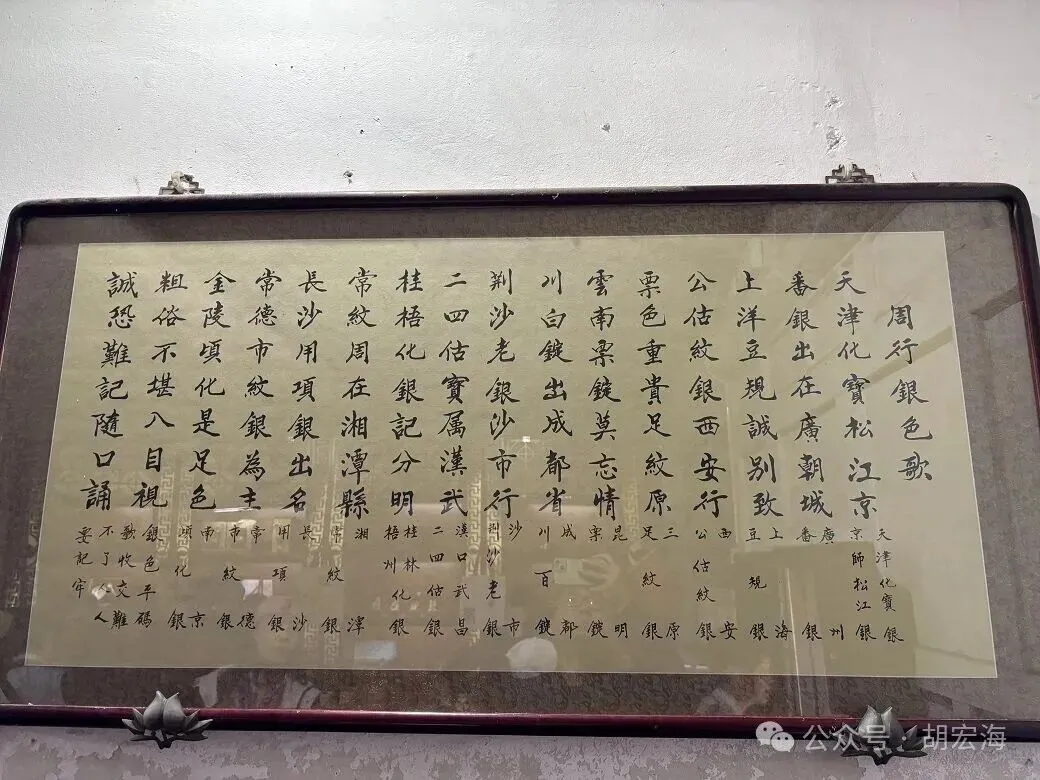 周行銀色歌
天津化寶松江京
番銀出在廣朝城
上洋豆規誠别致
公估紋銀西安行
票色重貴足紋原
雲南票錠莫忘情
川白錠出成都省
荆沙老銀沙市行
二四估寶属漢武
桂梧化銀記分明
常紋周在湘潭縣
長沙用項銀出名
常德市紋銀為主
金陵頃化是足色
粗俗不堪入目視
誠恐難記隨口誦
天津化寶銀
京師松江銀
廣州
番銀
上海
豆規銀
西安
公估紋銀
三原
足紋銀
昆明
票錠
成都
川百錠
沙市
荆沙老銀
漢口武昌
二四估銀
桂林
梧州化銀
湘潭
常紋銀
長沙
用項銀
常德
市紋銀
南京
頃化銀
銀色平碼
歌收交難
不了人人
要記牢
公众号·胡宏海